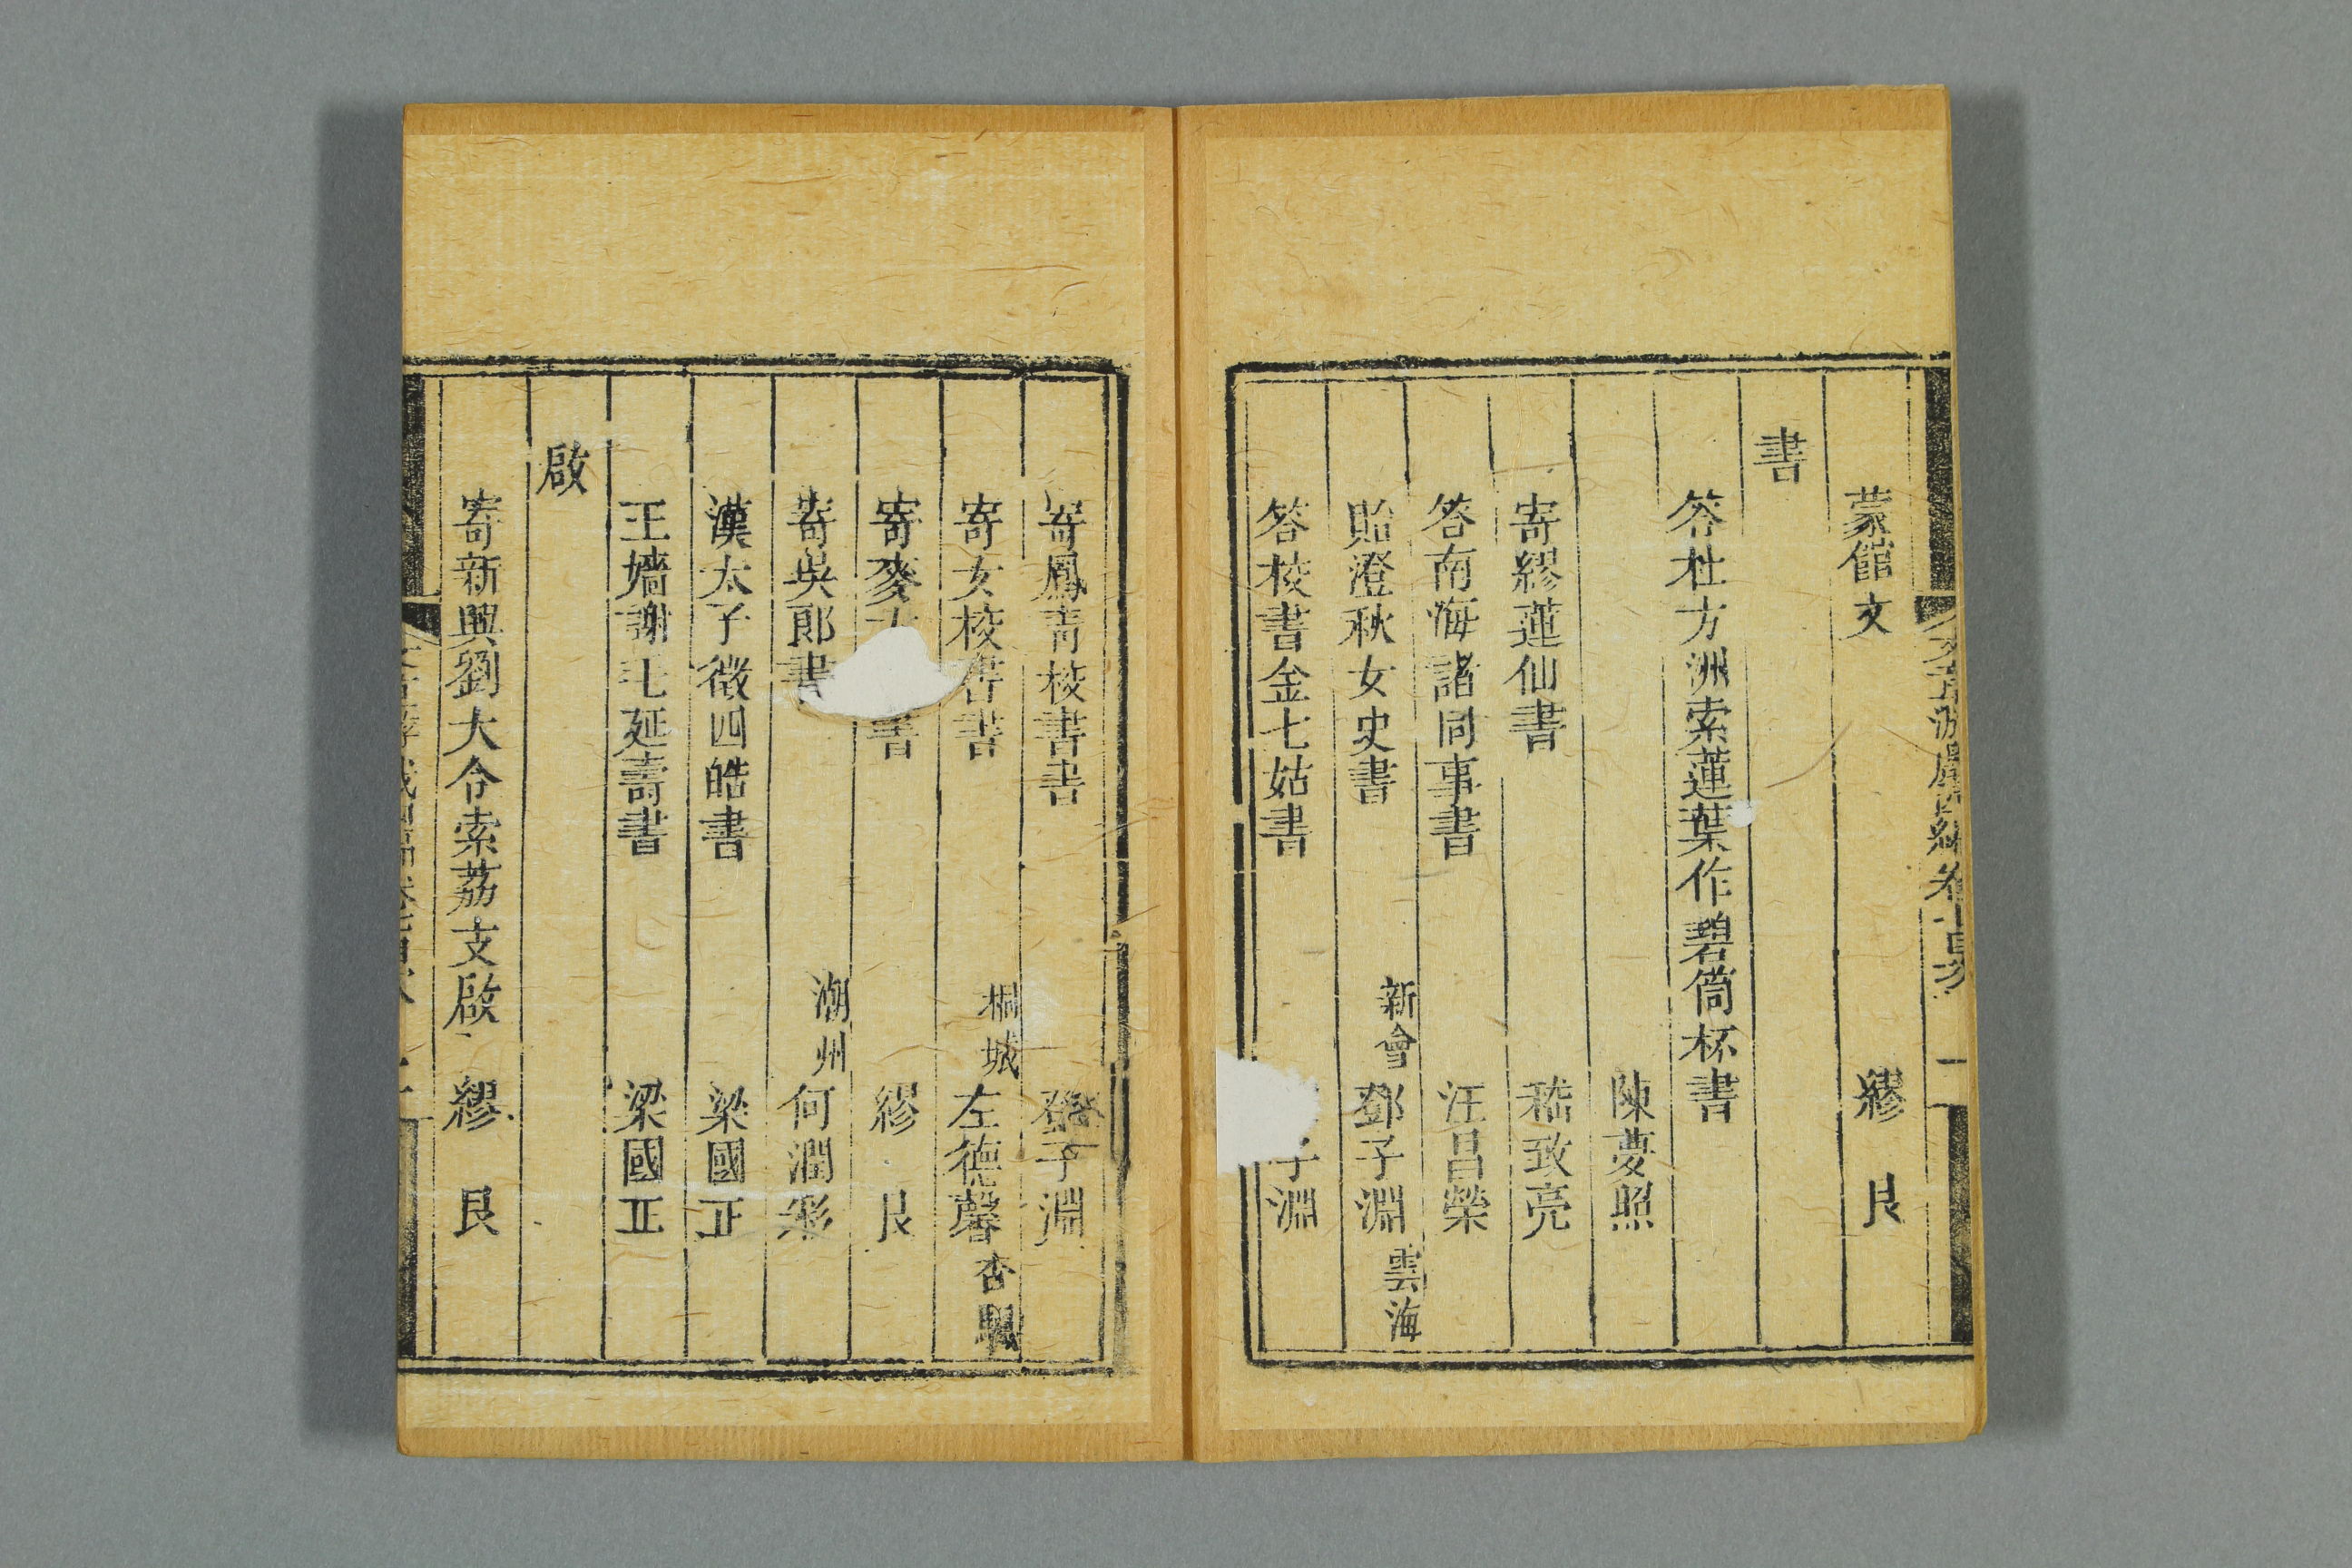 蒙館文 繆艮
書
答杜方洲索蓮葉作碧筒杯書
陳夢照
寄繆蓮仙書 嵇致亮
答南海諸同事書 汪昌榮
貽澄秋女史書 新會 鄧子淵 雲海
答校書金七姑書 子淵
寄鳳青校書書 鄧子淵
寄女校書書 桐城 左德馨 杏颿
寄麥 書 繆艮
寄吳郎書 潮州 何潤彩
漢太子徵四皓書 梁國正
王嬙謝毛延壽書 梁國正
啟
寄新興劉大令索荔支啟 繆艮